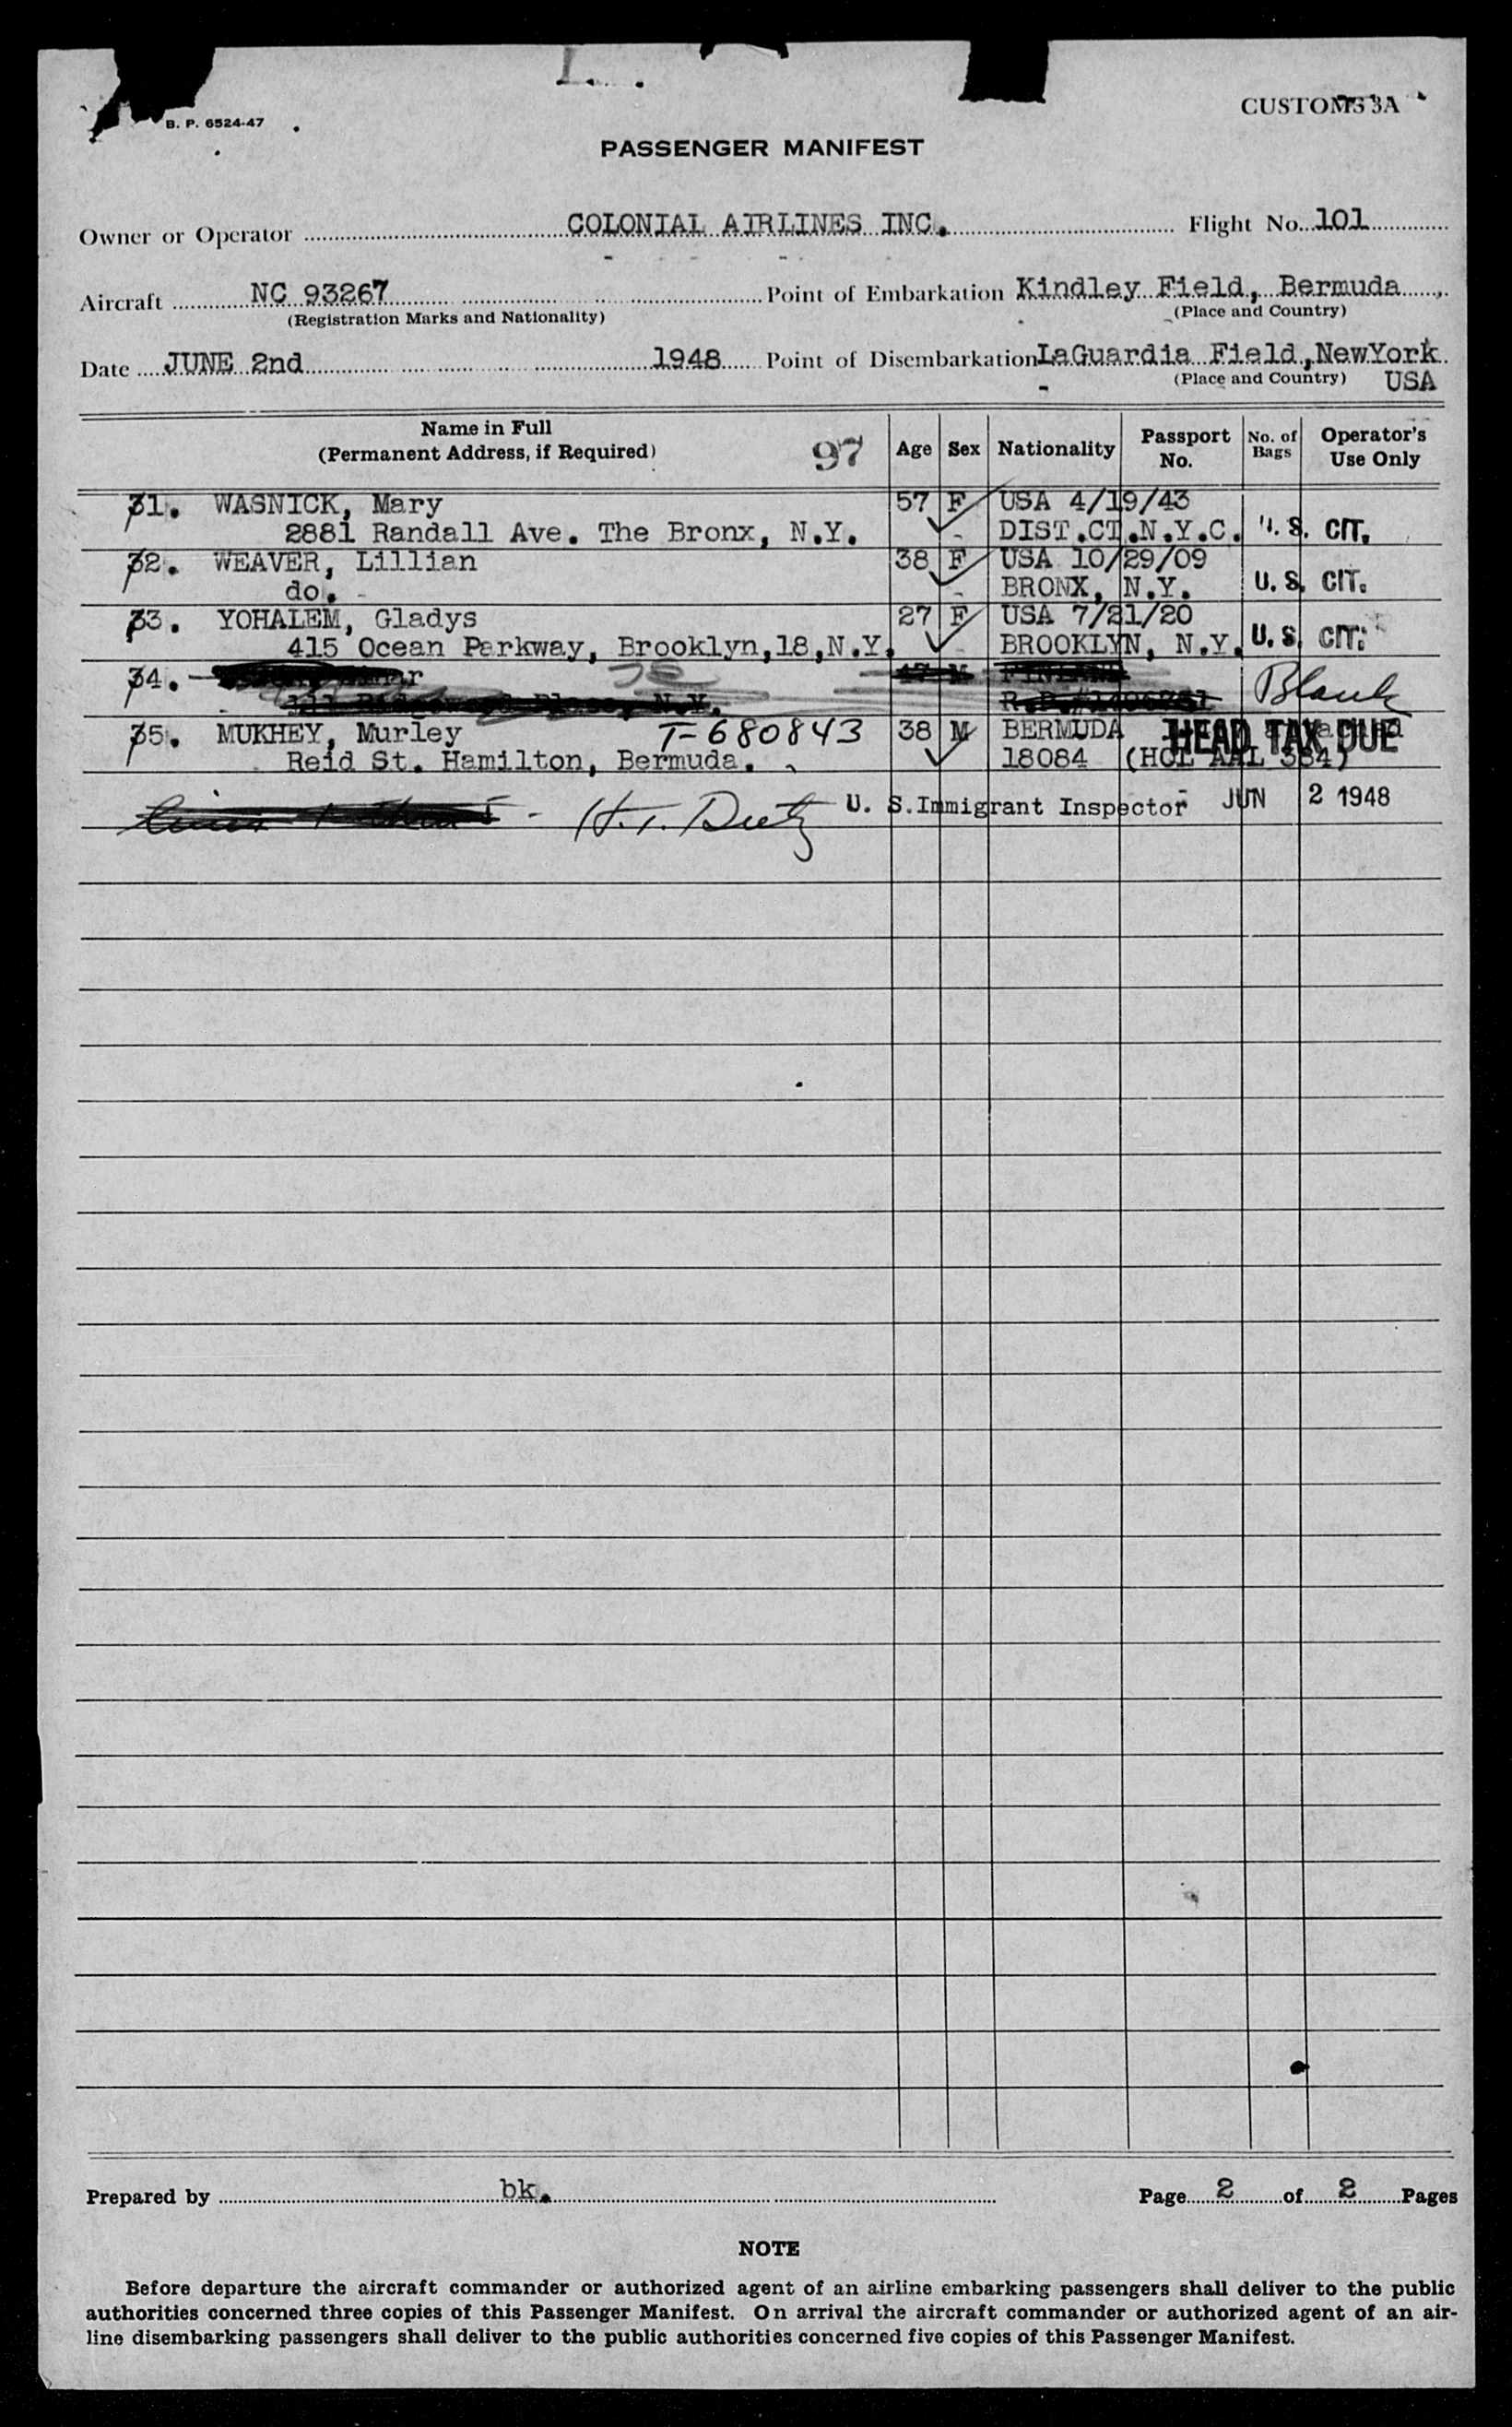 B. P. 6524-47
CUSTOMS 3A
PASSENGER MANIFEST
Owner or Operator COLONIAL AIRLINES INC. Flight No. 101
Aircraft NC 93267 Point of Embarkation Kindley Field, Bermuda
(Registration Marks and Nationality) (Place and Country)
Date JUNE 2nd 1948 Point of Disembarkation LaGuardia Field, NewYork
(Place and Country) USA
Name in Full
(Permanent Address, if Required) 97 Age Sex Nationality Passport No. No. of Bags Operator's Use Only
31. WASNICK, Mary 57 F USA 4/19/43
2881 Randall Ave. The Bronx, N.Y. DIST.CT.N.Y.C. U. S. CIT.
32. WEAVER, Lillian 38 F USA 10/29/09
do. BRONX, N.Y. U. S. CIT.
33. YOHALEM, Gladys 27 F USA 7/21/20
415 Ocean Parkway, Brooklyn,18,N.Y. BROOKLYN, N.Y. U. S. CIT.
34. Blank
35. MUKHEY, Murley T-680843 38 M BERMUDA HEAD TAX DUE
Reid St. Hamilton, Bermuda. 18084 (HCL AAL 384)
U. S. Immigrant Inspector JUN 2 1948
Prepared by bk. Page 2 of 2 Pages
NOTE
Before departure the aircraft commander or authorized agent of an airline embarking passengers shall deliver to the public
authorities concerned three copies of this Passenger Manifest. On arrival the aircraft commander or authorized agent of an air-
line disembarking passengers shall deliver to the public authorities concerned five copies of this Passenger Manifest.